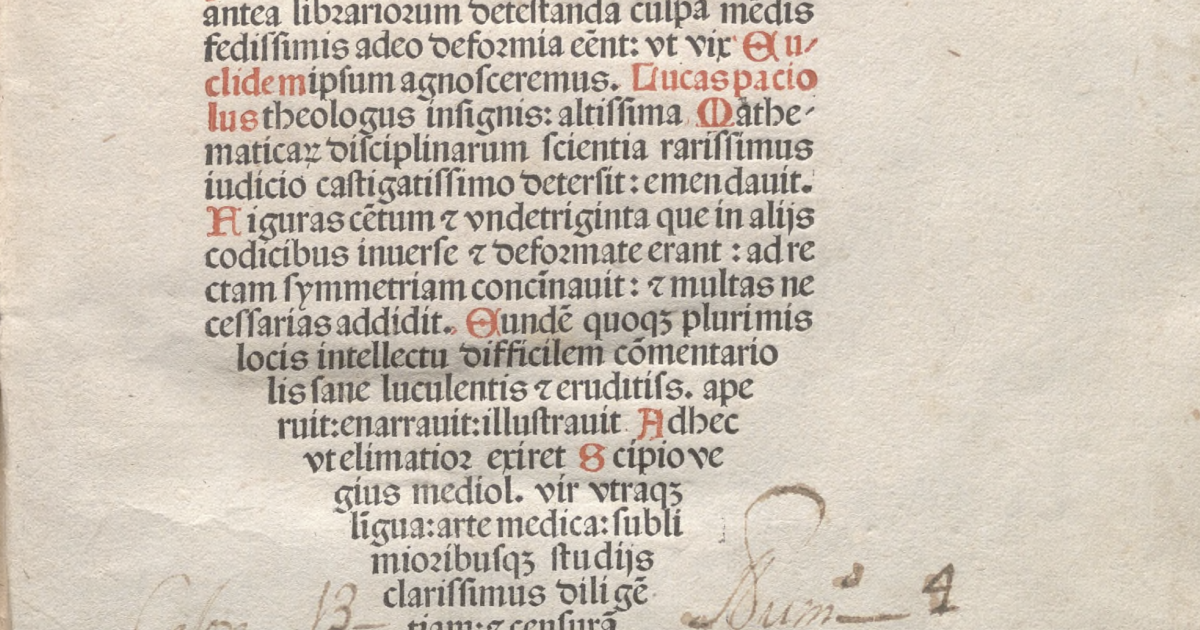 antea librariorum detestanda culpa mẽdis
fedissimis adeo deformia eẽnt: vt vix Eu/
clidem ipsum agnosceremus. Lucas pacio
lus theologus insignis: altissima Mathe/
maticaꝝ disciplinarum scientia rarissimus
iudicio castigatissimo detersit: emendauit.
Figuras cẽtum ⁊ vndetriginta que in alijs
codicibus inuerse ⁊ deformate erant: ad re
ctam symmetriam concĩnauit: ⁊ multas ne
cessarias addidit. Eundẽ quoqꝫ plurimis
locis intellectu difficilem cõmentario
lis sane luculentis ⁊ eruditiss. ape
ruit: enarrauit: illustrauit Adhec
vt elimatior exiret Scipio ve
gius mediol. vir vtraqꝫ
lĩgua: arte medica: subli
mioribusqꝫ studijs
clarissimus diligẽ
tiam: ⁊ censurã
13
Num 4